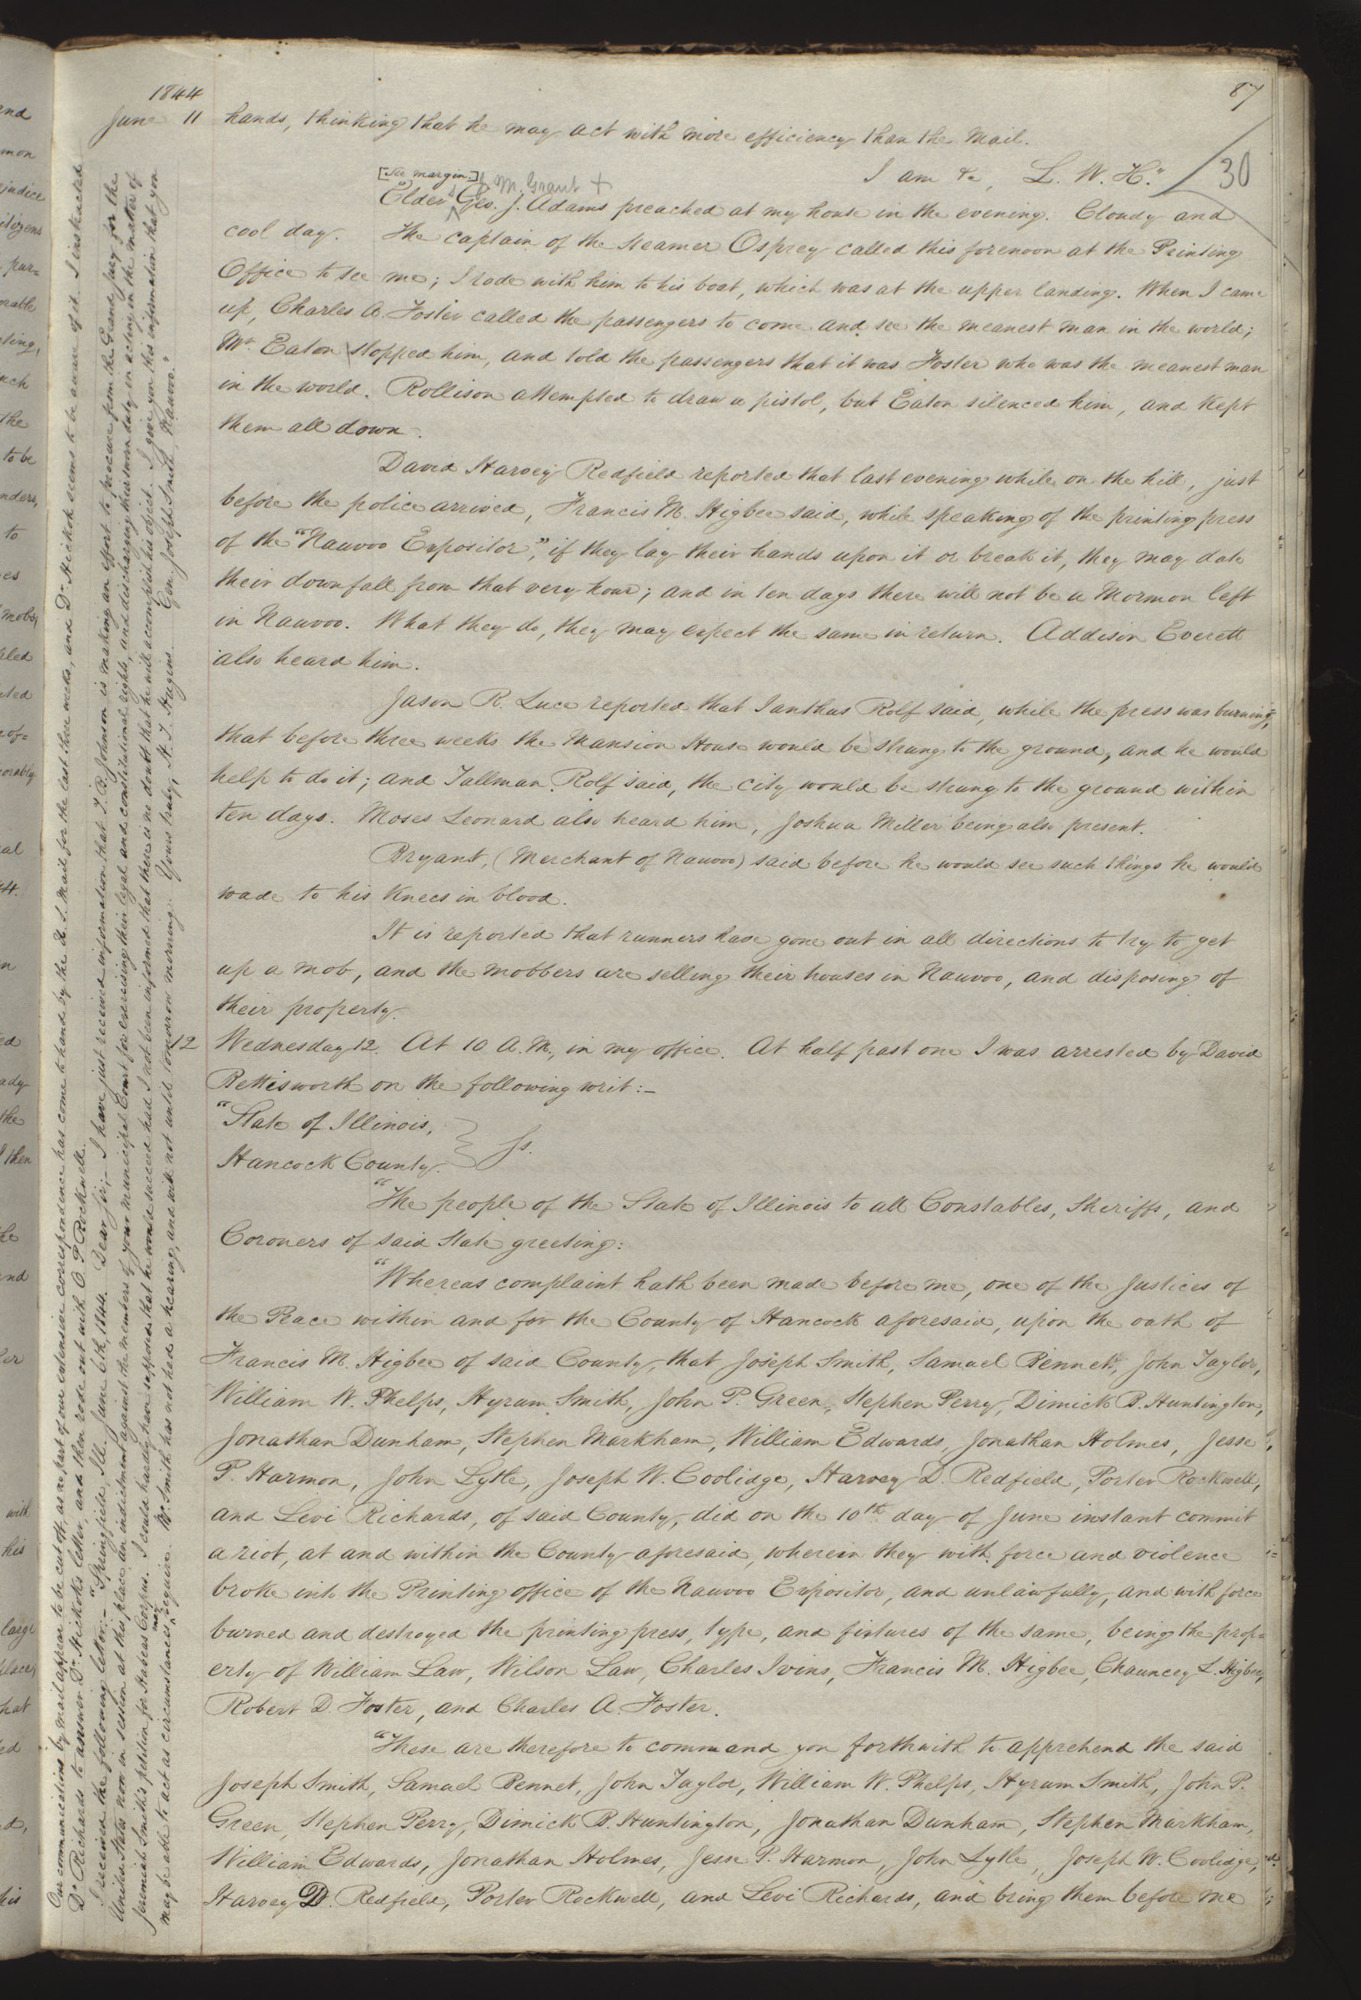 87
1844
June 11
hands, thinking that he may act with more efficiency than the Mail.
I am &c, L. W. H."
30
[See margin.]
J. M. Grant +
Elders Geo. J. Adams preached at my house in the evening. Cloudy and
cool day. The captain of the steamer Osprey called this forenoon at the Printing
Office to see me; I rode with him to his boat, which was at the upper landing. When I came
up, Charles A. Foster called the passengers to come and see the meanest man in the world;
Mr. Eaton stopped him, and told the passengers that it was Foster who was the meanest man
in the world. Rollison attempted to draw a pistol, but Eaton silenced him, and kept
them all down.
David Harvey Redfield reported that last evening while on the hill, just
before the police arrived, Francis M. Higbee said, while speaking of the printing press
of the "Nauvoo Expositor," if they lay their hands upon it or break it, they may date
their downfall from that very hour; and in ten days there will not be a Mormon left
in Nauvoo. What they do, they may expect the same in return. Addison Everett
also heard him.
Jason R. Luce reported that Ianthus Rolf said, while the press was burning,
that before three weeks the Mansion House would be strung to the ground, and he would
help to do it; and Tallman Rolf said, the city would be strung to the ground within
ten days. Moses Leonard also heard him, Joshua Miller being also present.
Bryant, (Merchant of Nauvoo) said before he would see such things he would
wade to his knees in blood.
It is reported that runners have gone out in all directions to try to get
up a mob, and the mobbers are selling their houses in Nauvoo, and disposing of
their property.
12
Wednesday 12. At 10 A.M., in my office. At half past one I was arrested by David
Bettisworth on the following writ:-
"State of Illinois,
Hancock County. } Ss.
"The people of the State of Illinois to all Constables, Sheriffs, and
Coroners of said State greeting:
"Whereas complaint hath been made before me, one of the Justices of
the Peace within and for the County of Hancock aforesaid, upon the oath of
Francis M. Higbee of said County, that Joseph Smith, Samuel Bennett, John Taylor,
William W. Phelps, Hyrum Smith, John P. Green, Stephen Perry, Dimick B. Huntington,
Jonathan Dunham, Stephen Markham, William Edwards, Jonathan Holmes, Jesse
P. Harmon, John Lytle, Joseph W. Coolidge, Harvey D. Redfield, Porter Rockwell,
and Levi Richards, of said County, did on the 10th day of June instant commit
a riot, at and within the County aforesaid, wherein they with force and violence
broke into the Printing office of the Nauvoo Expositor, and unlawfully, and with force
burned and destroyed the printing press, type, and fixtures of the same, being the prop=
erty of William Law, Wilson Law, Charles Ivins, Francis M. Higbee, Chauncey L. Higbee,
Robert D. Foster, and Charles A. Foster.
"These are therefore to command you forthwith to apprehend the said
Joseph Smith, Samuel Bennet, John Taylor, William W. Phelps, Hyrum Smith, John P.
Green, Stephen Perry, Dimick B. Huntington, Jonathan Dunham, Stephen Markham,
William Edwards, Jonathan Holmes, Jesse P. Harmon, John Lytle, Joseph W. Coolidge,
Harvey D. Redfield, Porter Rockwell, and Levi Richards, and bring them before me
Our communications by mail appear to be cut off, as no part of our extensive correspondence has come to hand by the U. S. Mail for the last three weeks, and Dr. Hickok seems to be aware of it. I instructed
Dr. Richards to answer Dr. Hickok's letter, and then rode out with O. P. Rockwell.
I received the following letter:- "Springfield, Ill. June 6th, 1844. Dear Sir,- I have just received information that T. B. Johnson is making an effort to procure from the Grand Jury for the
United States now in session at this place an indictment against the members of your municipal Court for exercising their legal and constitutional rights, and discharging their sworn duty in acting in the matter of
Jeremiah Smith's petition for Habeas Corpus. I could hardly have supposed that he would succeed had I not been informed that there is no doubt that he will accomplish his object. I give you this information that you
may be able to act as circumstances may require. Mr. Smith has not had a hearing, and will not until tomorrow morning. Yours truly, H. T. Hugins. Gen. Joseph Smith, Nauvoo."